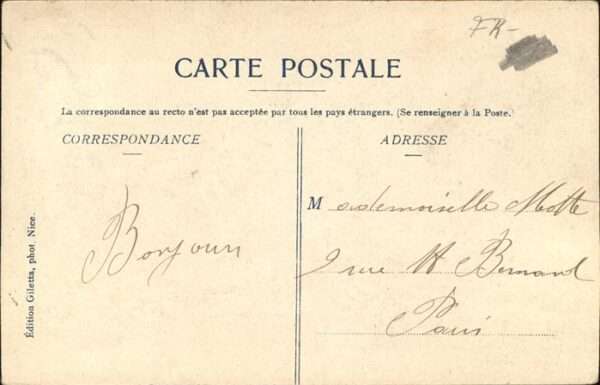 FR-
CARTE POSTALE
La correspondance au recto n'est pas acceptée par tous les pays étrangers. (Se renseigner à la Poste.
CORRESPONDANCE
ADRESSE
Bonjour
Mademoiselle Motte
2 rue St Bernard
Paris
Édition Giletta, phot. Nice.